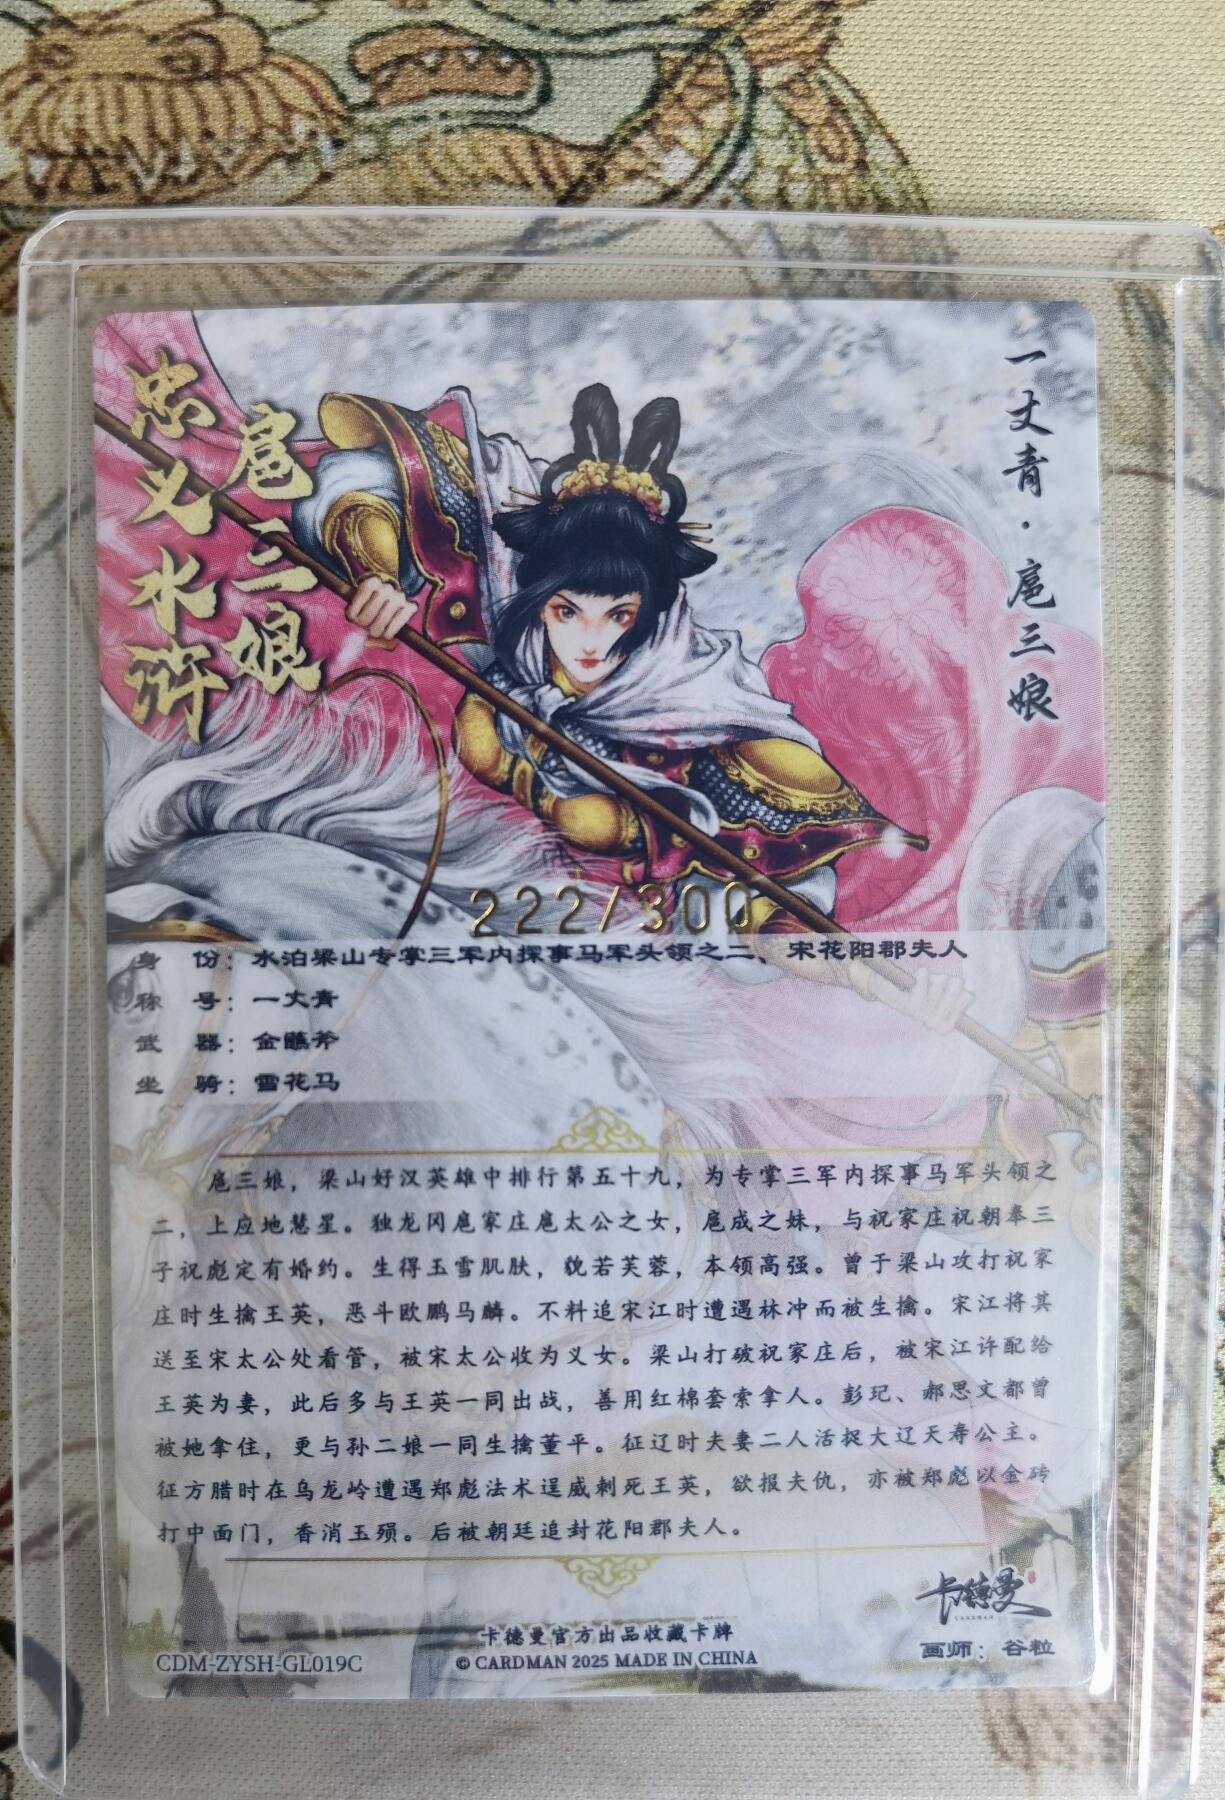 忠义水浒
扈三娘
一丈青·扈三娘
222/300
身 份：水泊梁山专掌三军内探事马军头领之二、宋花阳郡夫人
称 号：一丈青
武 器：金蘸斧
坐 骑：雪花马
扈三娘，梁山好汉英雄中排行第五十九，为专掌三军内探事马军头领之
二，上应地慧星。独龙冈扈家庄扈太公之女，扈成之妹，与祝家庄祝朝奉三
子祝彪定有婚约。生得玉雪肌肤，貌若芙蓉，本领高强。曾于梁山攻打祝家
庄时生擒王英，恶斗欧鹏马麟。不料追宋江时遭遇林冲而被生擒。宋江将其
送至宋太公处看管，被宋太公收为义女。梁山打破祝家庄后，被宋江许配给
王英为妻，此后多与王英一同出战，善用红棉套索拿人。彭玘、郝思文都曾
被她拿住，更与孙二娘一同生擒董平。征辽时夫妻二人活捉大辽天寿公主。
征方腊时在乌龙岭遭遇郑彪法术逞威刺死王英，欲报夫仇，亦被郑彪以金砖
打中面门，香消玉殒。后被朝廷追封花阳郡夫人。
卡德曼
CARDMAN
卡德曼官方出品收藏卡牌
CDM-ZYSH-GL019C
© CARDMAN 2025 MADE IN CHINA
画师：谷粒